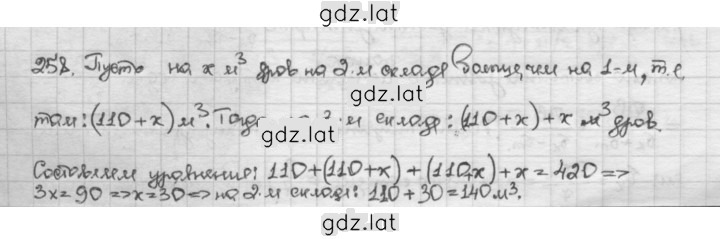 gdz.lat
258. Пусть на x м³ дров на 2-м складе больше, чем на 1-м, т.е.
gdz.lat
там: (110+x) м³. Тогда на м складе: (110+x)+x м³ дров.
gdz.lat
Составляем уравнение: 110+(110+x)+(110+x)+x=420 =>
3x=90 => x=30 => на 2-м складе: 110+30=140 м³.
gdz.lat